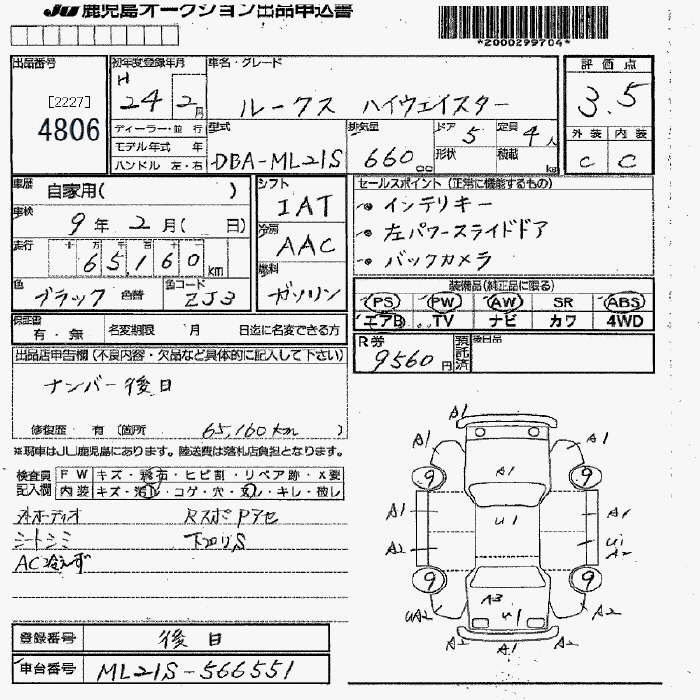 JU 鹿児島オークション出品申込書
*2000299704*
出品番号
[2227]
4806
初年度登録年月
H
24 2月
ディーラー・並 行
モデル年式 年
ハンドル 左・右
車名・グレード
ルークス ハイウェイスター
型式
DBA-ML21S
排気量
660 cc
ドア
5
定員
4人
形状
積載
kg
評価点
3.5
外装 内装
C C
車歴
自家用( )
車検
9年 2月( 日)
走行
十 万 千 百 十
65,160 km
色
ブラック 色替
色コード
ZJ3
シフト
IAT
冷房
AAC
燃料
ガソリン
セールスポイント (正常に機能するもの)
・インテリキー
・左パワースライドドア
・バックカメラ
装備品(純正品に限る)
PS PW AW SR ABS
エアB TV ナビ カワ 4WD
保証書
有・無
名変期限 月 日迄に名変できる方
R券
9560円
預託済
後日品
出品店申告欄 (不良内容・欠品など具体的に記入して下さい)
ナンバー後日
修復歴 有 (箇所 65,160km )
※現車はJU鹿児島にあります。陸送費は落札店負担となります。
検査員
記入欄
FW キズ・飛石・ヒビ割・リペア跡・X要
内装 キズ・汚れ・コゲ・穴・スレ・キレ・破レ
オーディオ
シートシミ
AC冷えず
RスポPアセ
下回りS
A1
A1 A1
A1
9 9
A1 U1 A1
A2 U1
A2
9 9
A3
UA2 U1 A2
A2 A1 A2
登録番号 後日
車台番号 ML21S-566551